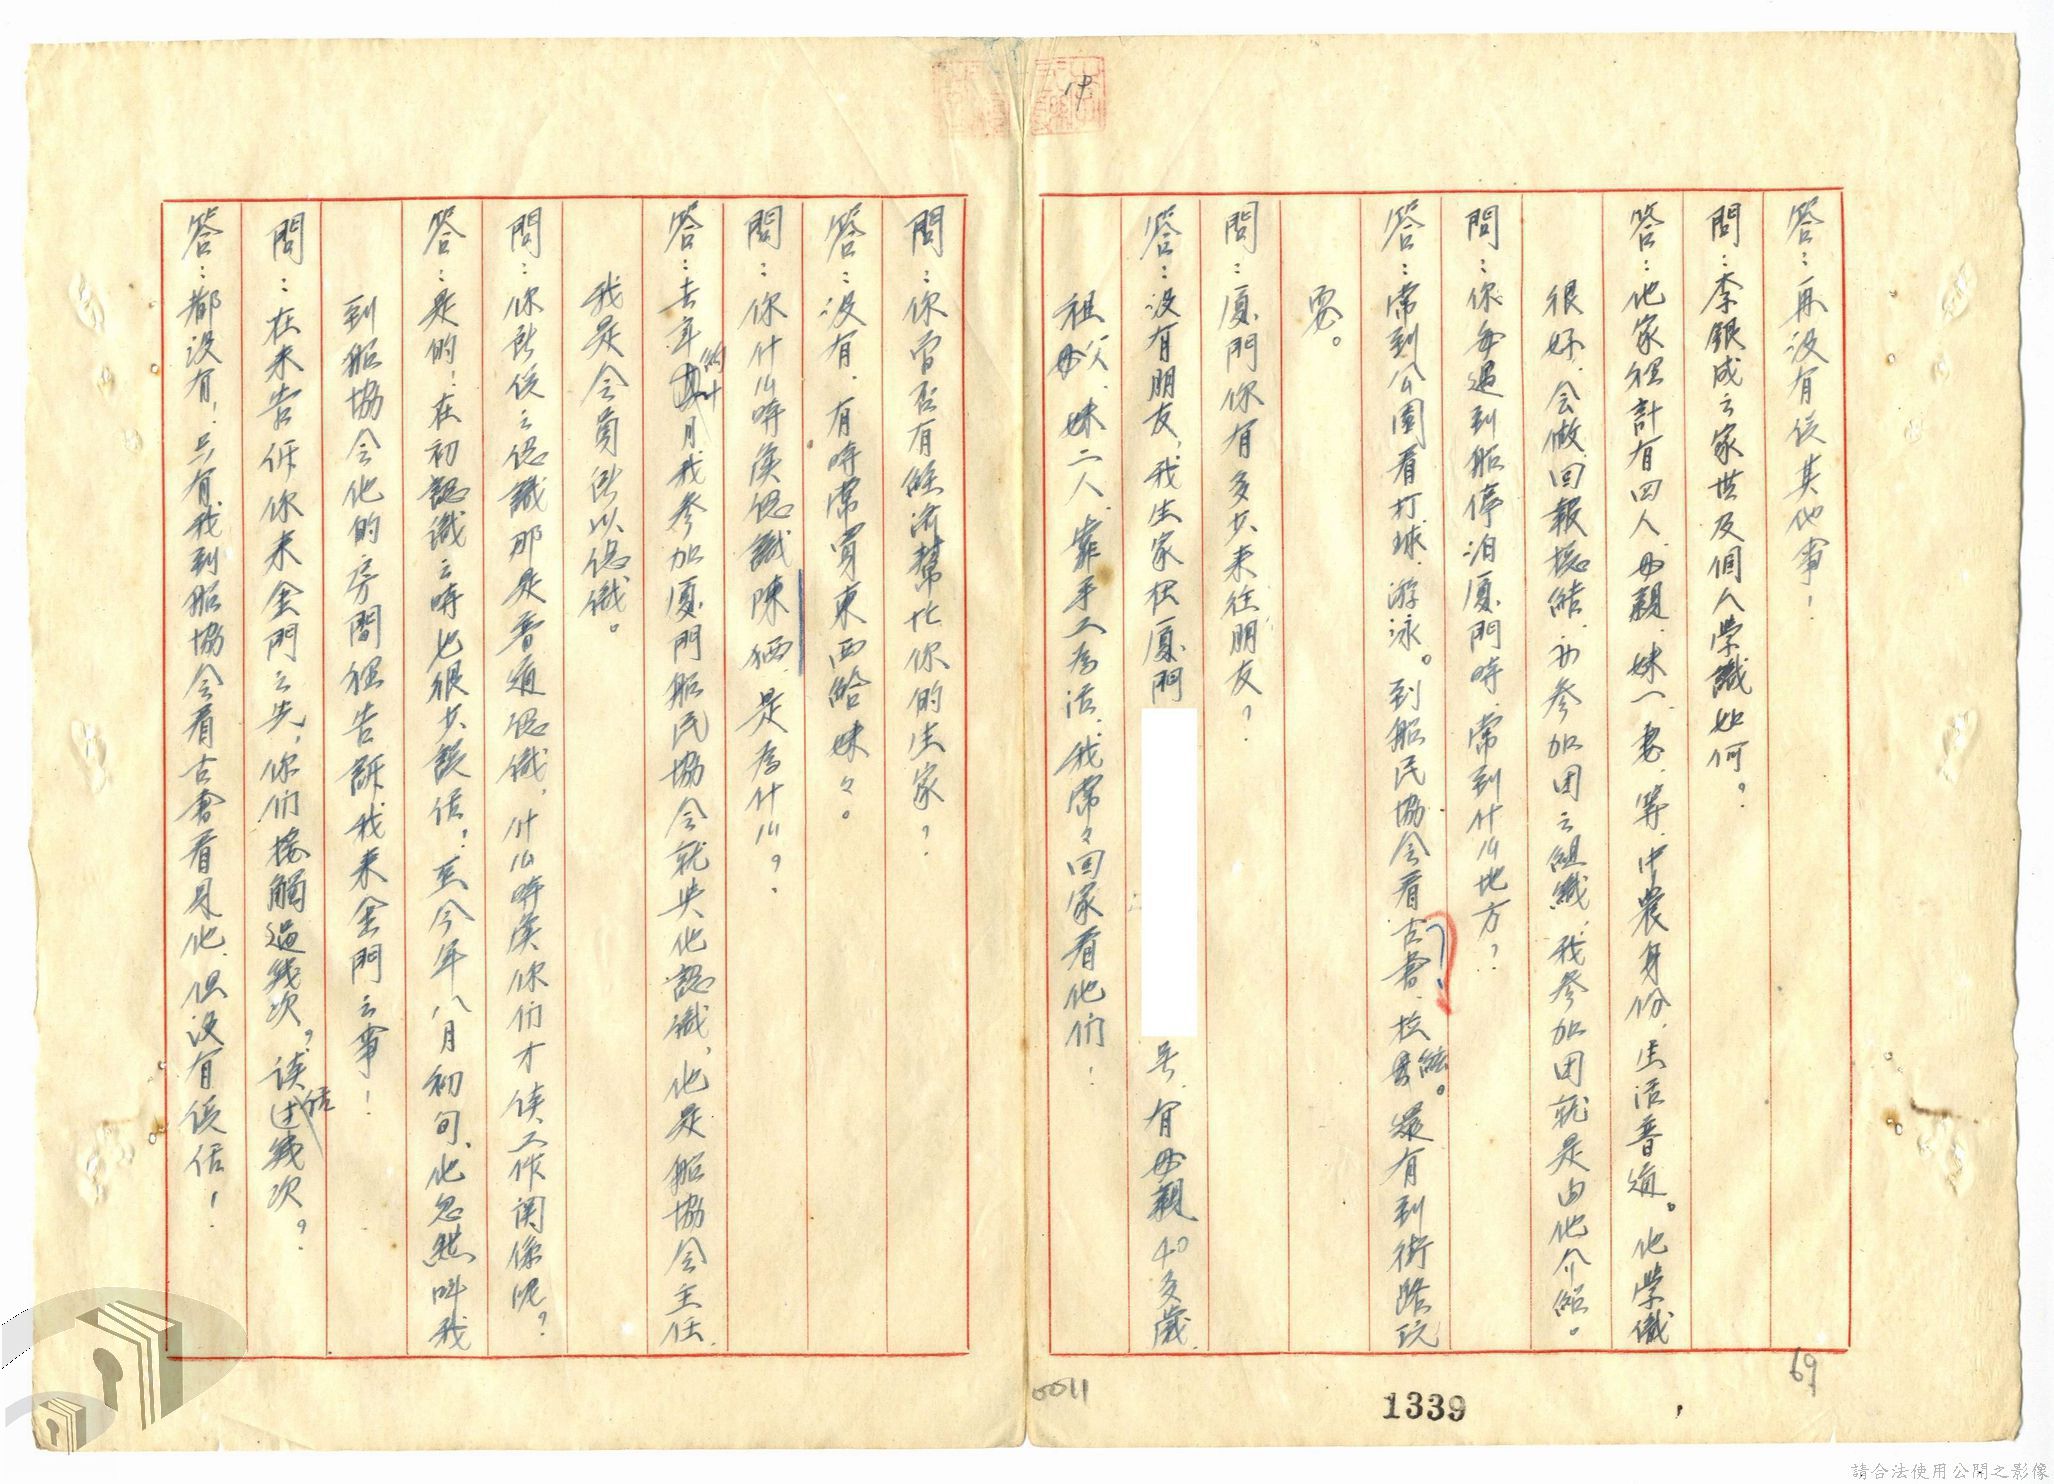 答：再没有谈其他事！
問：李銀成之家世及個人學識如何？
答：他家裡計有四人，母親、妹一、妻、等，中農身份，生活普通。他學識
很好，会做回報總結，並参加团之組織，我参加团就是由他介紹。
問：你每週到船停泊厦門時，常到什么地方？
答：常到公園看打球、游泳。到船民協会看古書、拉絃。還有到街路玩
耍。
問：厦門你有多少来往朋友？
答：没有朋友，我生家在厦門
号，有母親40多歲，
祖父母、妹二人，靠手工為活，我常々回家看他們！
問：你曾否有經濟幫忙你的生家？
答：没有，有時常買東西給妹々。
問：你什么時候認識陳 是為什么？
答：去年 月我参加厦門船民協会就與他認識，他是船協会主任，
我是会員所以認識。
問：你所谈之認識那是普通認識，什么時候你們才谈工作関係呢？
答：是的！在初認識之時也很少談话，至今年八月初旬，他忽然叫我
到船協会他的房間裡告訴我来金門之事！
問：在未告訴你来金門之先，你們接觸過幾次？谈话幾次？
答：都没有！只有我到船協会看古書看見他，但没有谈话！
0011
1339
69
請合法使用公開之影像